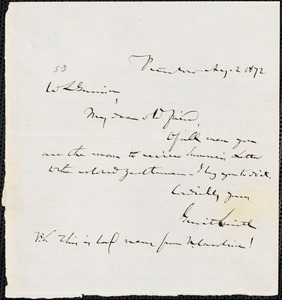 53
Peterboro Aug. 2 1872
W L Garrison
My dear old friend,
Of all men you
are the man to review Sumner's Letter
to the colored gentlemen. I beg you to do it.
Cordially yours
Gerrit Smith
P.S. This is bad news from